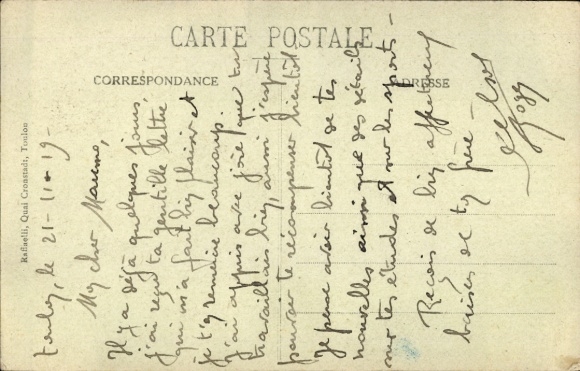 CARTE POSTALE
CORRESPONDANCE
ADRESSE
Raffaelli, Quai Cronstadt, Toulon
Toulon, le 21-11-19-
My cher
Il y a déjà quelques jours
j'ai reçu ta gentille lettre
qui m'a fait bien plaisir et
je t'en remercie beaucoup.
J'ai appris avec joie que tu
travaillais bien, aussi j'espère
pouvoir te récompenser bientôt
Je pense avoir bientôt de tes
nouvelles ainsi que des détails
sur tes études et sur les sports-
Reçois de bien affectueux
baisers de ton frère-